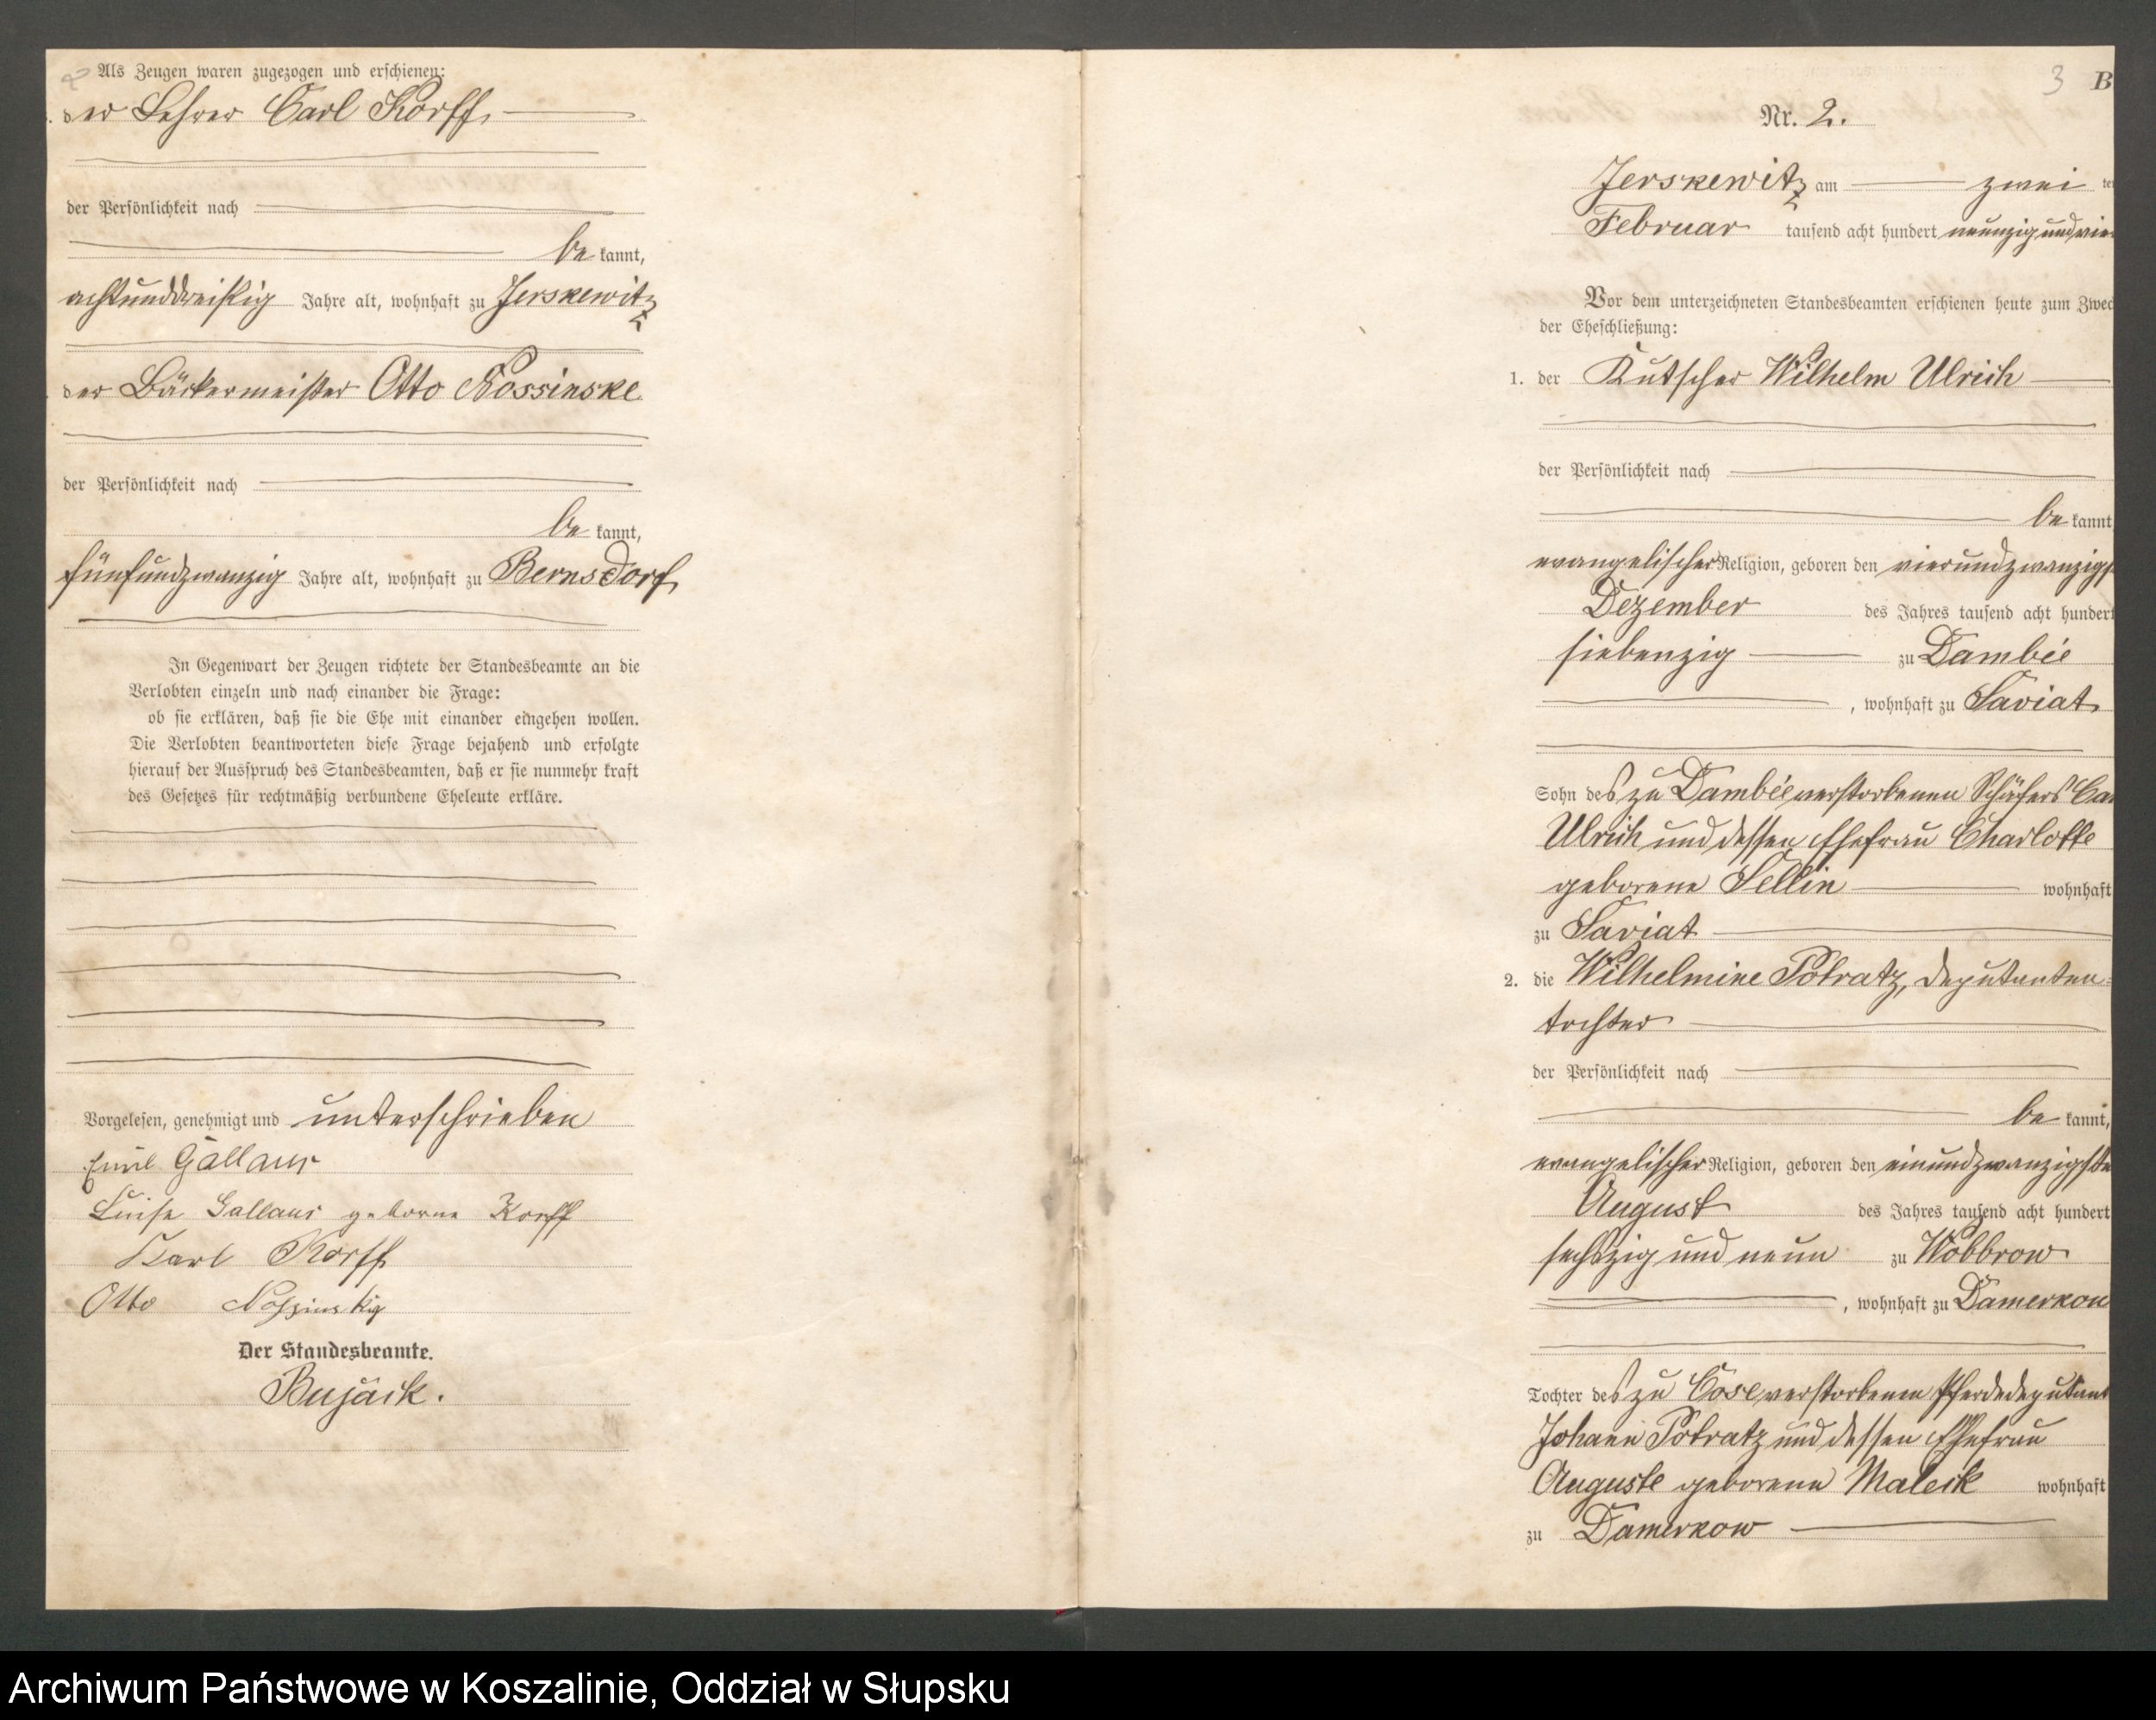 Als Zeugen waren zugezogen und erschienen:
der Lehrer Carl Korff,
der Persönlichkeit nach
be kannt,
achtunddreißig Jahre alt, wohnhaft zu Jerskewitz
der Bäckermeister Otto Nossinske
der Persönlichkeit nach
be kannt,
fünfundzwanzig Jahre alt, wohnhaft zu Bernsdorf,
In Gegenwart der Zeugen richtete der Standesbeamte an die
Verlobten einzeln und nach einander die Frage:
ob sie erklären, daß sie die Ehe mit einander eingehen wollen.
Die Verlobten beantworteten diese Frage bejahend und erfolgte
hierauf der Ausspruch des Standesbeamten, daß er sie nunmehr kraft
des Gesetzes für rechtmäßig verbundene Eheleute erkläre.
Vorgelesen, genehmigt und unterschrieben
Emil Gallaus
Luise Gallaus geborne Korff
Karl Korff
Otto
Der Standesbeamte.
Bujack.
3 B
Nr. 2.
Jerskewitz am zwei ten
Februar tausend acht hundert neunzig und vier
Vor dem unterzeichneten Standesbeamten erschienen heute zum Zwec
der Eheschließung:
1. der Kutscher Wilhelm Ulrich
der Persönlichkeit nach
be kannt
evangelischer Religion, geboren den vierundzwanzigs
Dezember des Jahres tausend acht hundert
siebenzig zu Dambée
, wohnhaft zu Saviat,
Sohn des zu Dambée verstorbenen Schäfers Car
Ulrich und dessen Ehefrau Charlotte
geborene Sellin wohnhaft
zu Saviat
2. die Wilhelmine Potratz, Deputanten-
tochter
der Persönlichkeit nach
be kannt,
evangelischer Religion, geboren den einundzwanzigste
August des Jahres tausend acht hundert
sechszig und neun zu Wobbrow
, wohnhaft zu Damerkow
Tochter des zu Cose verstorbenen Pferdedeputant
Johann Potratz und dessen Ehefrau
Auguste geborene Maleik wohnhaft
zu Damerkow
Archiwum Państwowe w Koszalinie, Oddział w Słupsku